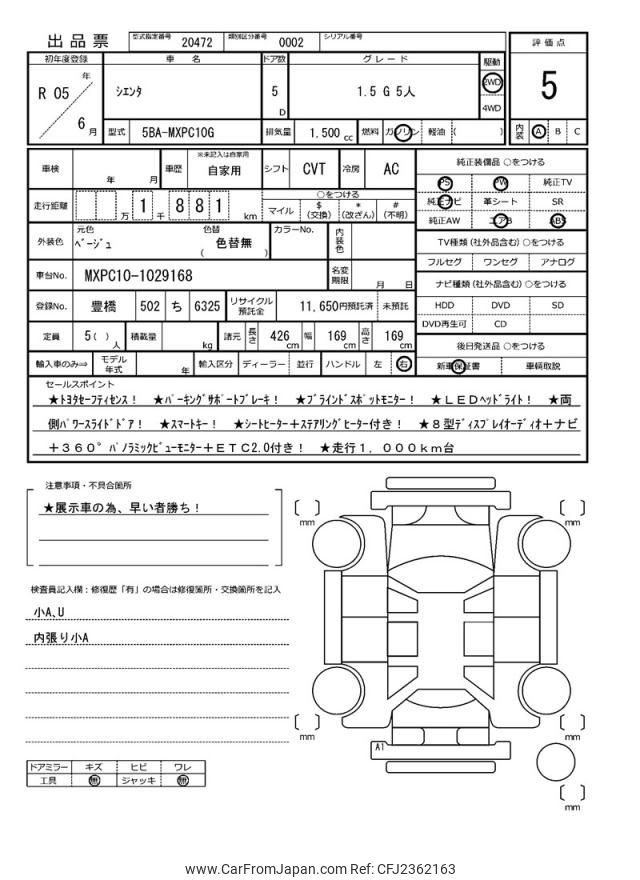 出品票 型式指定番号 20472 類別区分番号 0002 シリアル番号
評価点
5
内装 A B C
初年度登録 車名 ドア数 グレード 駆動
R 05 年 6 月 シエンタ 5 D 1.5 G 5人 2WD 4WD
型式 5BA-MXPC10G 排気量 1.500 cc 燃料 ガソリン 軽油 ( )
車検 年 月 車歴 ※未記入は自家用 自家用 シフト CVT 冷房 AC
走行距離 万 1 千 8 8 1 km ○をつける マイル $ (交換) * (改ざん) # (不明)
外装色 元色 ベージュ 色替 色替無 ( ) カラーNo. 内装色
車台No. MXPC10-1029168 名変期限 月 日
登録No. 豊橋 502 ち 6325 リサイクル預託金 11,650円預託済 未預託
定員 5( )人 積載量 kg 諸元 長さ 426 cm 幅 169 cm 高さ 169 cm
輸入車のみ⇒ モデル年式 年 輸入区分 ディーラー 並行 ハンドル 左 右
純正装備品 ○をつける
PS PW 純正TV
純正ナビ 革シート SR
純正AW エアB ABS
TV種類(社外品含む)○をつける
フルセグ ワンセグ アナログ
ナビ種類(社外品含む)○をつける
HDD DVD SD
DVD再生可 CD
後日発送品 ○をつける
新車保証書 車輌取説
セールスポイント
★トヨタセーフティセンス! ★パーキングサポートブレーキ! ★ブラインドスポットモニター! ★LEDヘッドライト! ★両
側パワースライドドア! ★スマートキー! ★シートヒーター+ステアリングヒーター付き! ★8型ディスプレイオーディオ+ナビ
+360°パノラミックビューモニター+ETC2.0付き! ★走行1,000km台
注意事項・不具合箇所
★展示車の為、早い者勝ち!
検査員記入欄:修復歴「有」の場合は修復箇所・交換箇所を記入
小A,U
内張り小A
ドアミラー キズ ヒビ ワレ
工具 無 ジャッキ 無
mm
mm
A1
mm
mm
mm
www.CarFromJapan.com Ref: CFJ2362163